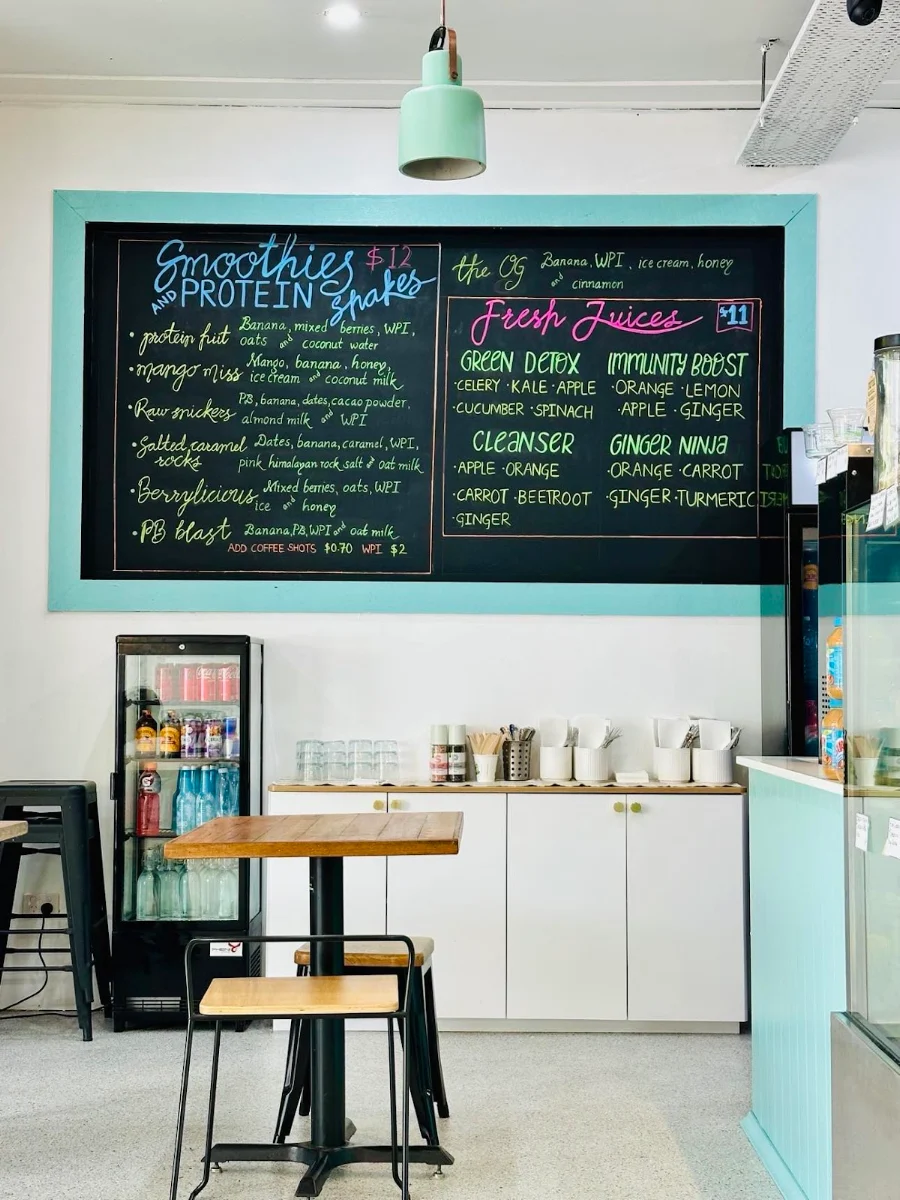 Smoothies $12
AND PROTEIN shakes
• protein fruit Banana, mixed berries, WPI,
oats and coconut water
• mango miss Mango, banana, honey,
ice cream and coconut milk
• Raw snickers PB, banana, dates, cacao powder,
almond milk and WPI
• Salted caramel rocks Dates, banana, caramel, WPI,
pink himalayan rock salt & oat milk
• Berrylicious Mixed berries, oats, WPI
ice and honey
• PB blast Banana, PB, WPI and oat milk
ADD COFFEE SHOTS $0.70 WPI $2
the OG Banana, WPI, ice cream, honey
and cinnamon
Fresh Juices $11
GREEN DETOX
·CELERY ·KALE ·APPLE
·CUCUMBER ·SPINACH
IMMUNITY BOOST
·ORANGE ·LEMON
·APPLE ·GINGER
CLEANSER
·APPLE ·ORANGE
·CARROT ·BEETROOT
·GINGER
GINGER NINJA
·ORANGE ·CARROT
·GINGER ·TURMERIC